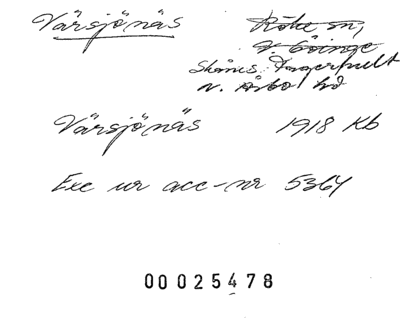 Värsjönäs Röke sn,
V. Göinge
Skånes Fagerhult
N. Åsbo hd
Värsjönäs 1918 Kb
Exc ur acc-nr 5364
00025478